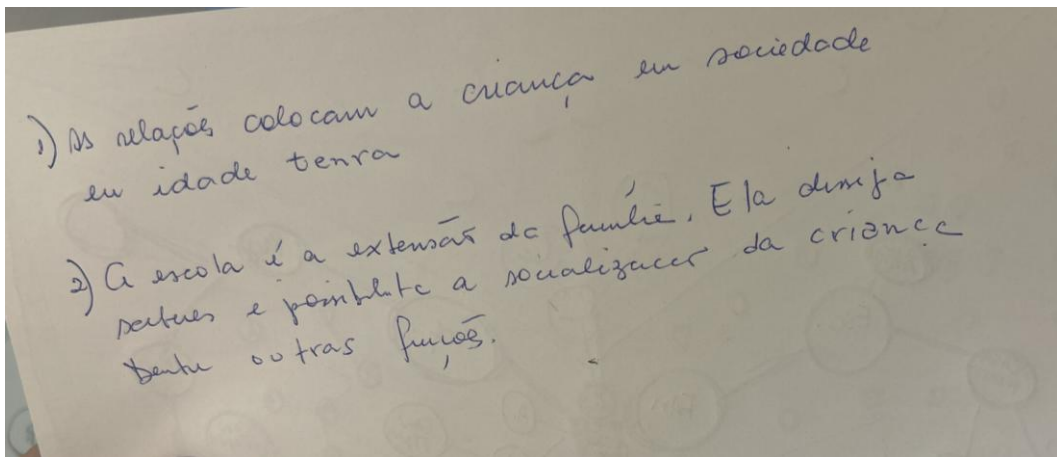 1) As relações colocam a criança em sociedade
em idade tenra
2) A escola é a extensão da família. Ela
e possibilita a socialização da criança
dentre outras funções.